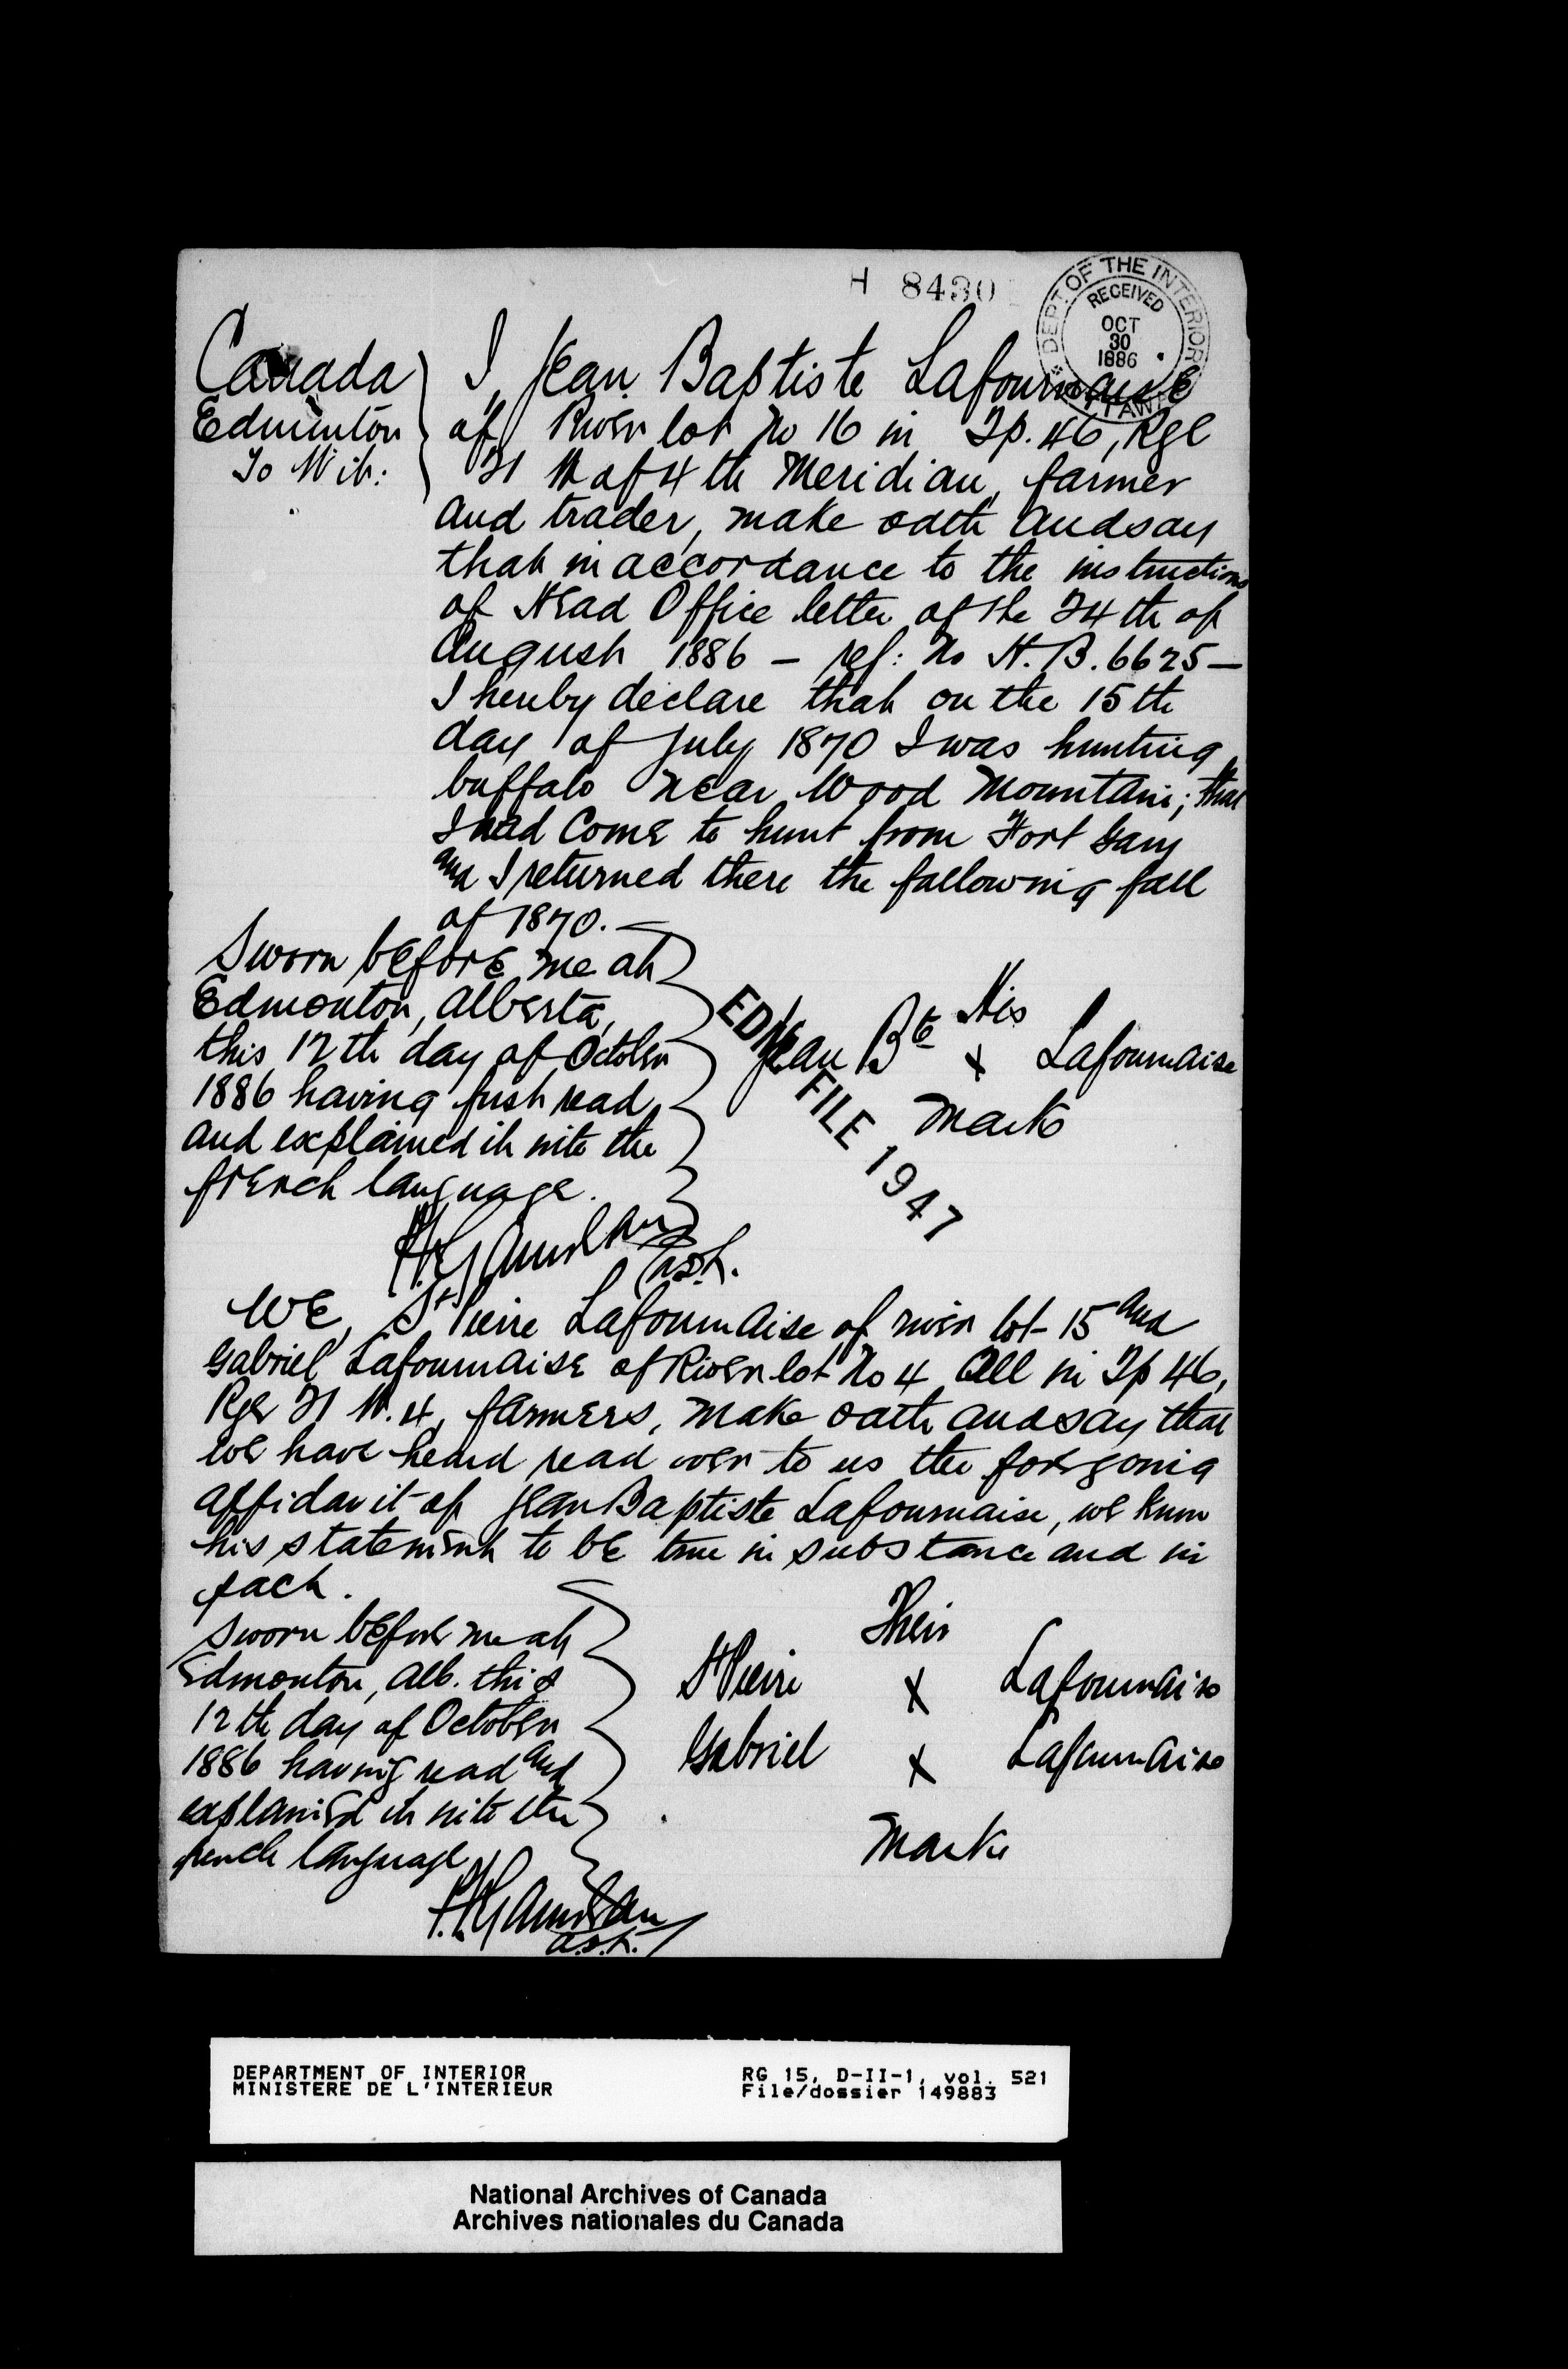 H 8430
DEPT. OF THE INTERIOR
RECEIVED
OCT
30
1886
OTTAWA
Canada
Edmonton
To Wit:
I, Jean Baptiste Lafournaise
of River lot No 16 in Tp. 46, Rge
21 W of 4th Meridian, farmer
and trader, make oath and say
that in accordance to the instructions
of Head Office letter of the 24th of
August 1886 — ref: No H.B. 6625 —
I hereby declare that on the 15th
day of July 1870 I was hunting
buffalo near Wood Mountain; that
I had come to hunt from Fort Gary
and I returned there the following fall
of 1870. —
Sworn before me at
Edmonton, Alberta,
this 12th day of October
1886 having first read
and explained it into the
french language.
Ast.
His
Jean Bte x Lafournaise
mark
EDM. FILE 1947
We, St Pierre Lafournaise of river lot 15 and
Gabriel Lafournaise of River lot No 4 all in Tp 46,
Rge 21 W. 4, farmers, make oath and say that
we have heard read over to us the foregoing
affidavit of Jean Baptiste Lafournaise, we know
his statement to be true in substance and in
fact.
Sworn before me at
Edmonton, Alb. this
12th day of October
1886 having read and
explained it into the
french language
a.s.t.
Their
St Pierre x Lafournaise
Gabriel x Lafournaise
Marks
DEPARTMENT OF INTERIOR
MINISTERE DE L'INTERIEUR
RG 15, D-II-1, vol. 521
File/dossier 149883
National Archives of Canada
Archives nationales du Canada